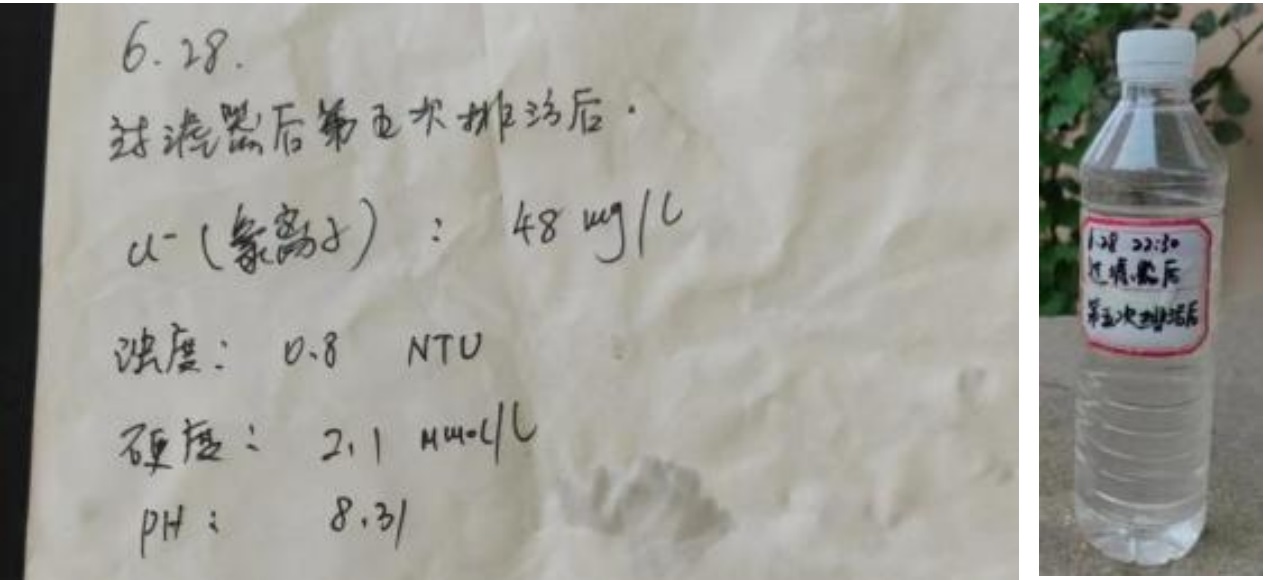 6.28.
过滤器后第五次排污后.
Cl⁻(氯离子): 48 mg/L
浊度: 0.8 NTU
硬度: 2.1 mmol/L
PH: 8.31
6.28 22:30
过滤器后
第五次排污后